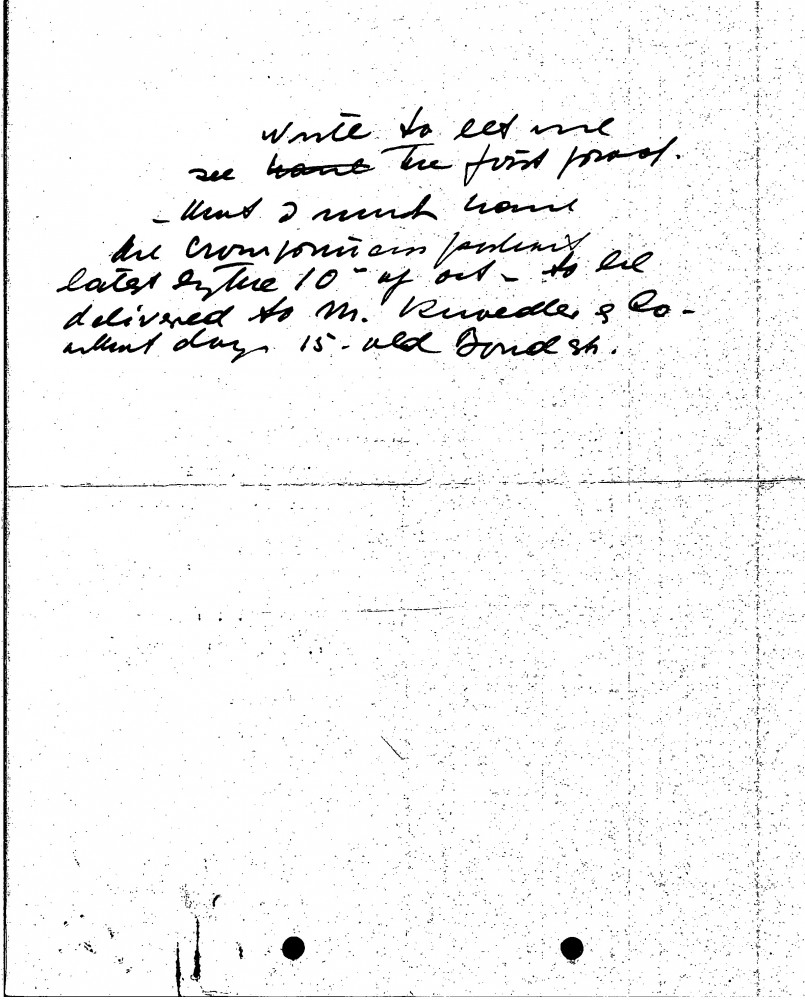 Write to let me
see have the first proof.
- that I must have
the Crown
latest by the 10 - of oct - to be
delivered to M. Knoedler & Co -
that day. 15 - old Bond St.